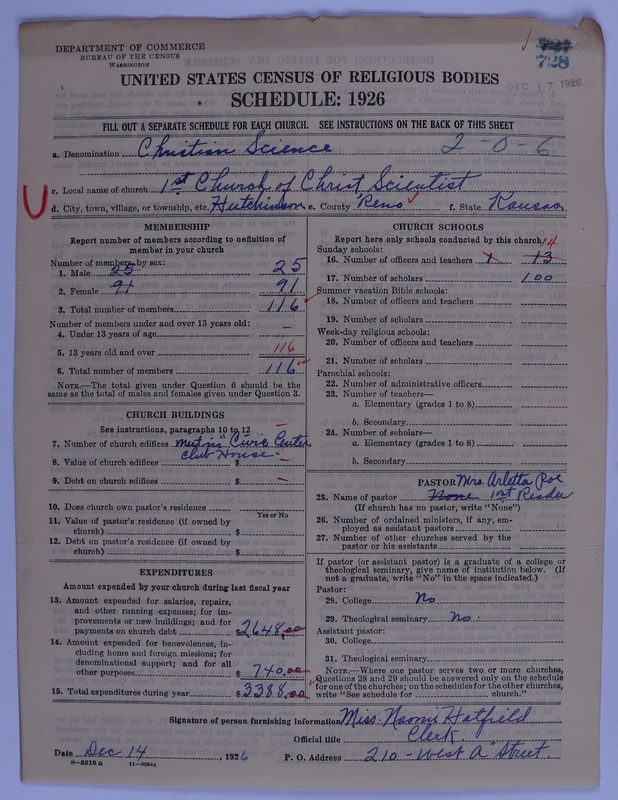 DEPARTMENT OF COMMERCE
BUREAU OF THE CENSUS
WASHINGTON
727
728
DEC 17 1926
UNITED STATES CENSUS OF RELIGIOUS BODIES
SCHEDULE: 1926
FILL OUT A SEPARATE SCHEDULE FOR EACH CHURCH. SEE INSTRUCTIONS ON THE BACK OF THIS SHEET
a. Denomination Christian Science 2-0-6
c. Local name of church 1st Church of Christ Scientist
d. City, town, village, or township, etc. Hutchinson e. County Reno f. State Kansas
MEMBERSHIP
Report number of members according to definition of
member in your church
Number of members by sex:
1. Male 25 25
2. Female 91 91
3. Total number of members 116
Number of members under and over 13 years old:
4. Under 13 years of age –
5. 13 years old and over 116
6. Total number of members 116
NOTE.—The total given under Question 6 should be the
same as the total of males and females given under Question 3.
CHURCH BUILDINGS
See instructions, paragraphs 10 to 12
7. Number of church edifices meet in "Civic Center –
Club House"
8. Value of church edifices $
9. Debt on church edifices $ –
10. Does church own pastor's residence
Yes or No
11. Value of pastor's residence (if owned by
church) $
12. Debt on pastor's residence (if owned by
church) $
EXPENDITURES
Amount expended by your church during last fiscal year
13. Amount expended for salaries, repairs,
and other running expenses; for im-
provements or new buildings; and for
payments on church debt $2648.00
14. Amount expended for benevolences, in-
cluding home and foreign missions; for
denominational support; and for all
other purposes $ 740.00
15. Total expenditures during year $3388.00
CHURCH SCHOOLS
Report here only schools conducted by this church
Sunday schools: 14
16. Number of officers and teachers 1 13
17. Number of scholars 100
Summer vacation Bible schools:
18. Number of officers and teachers
19. Number of scholars
Week-day religious schools:
20. Number of officers and teachers
21. Number of scholars
Parochial schools:
22. Number of administrative officers
23. Number of teachers—
a. Elementary (grades 1 to 8)
b. Secondary
24. Number of scholars—
a. Elementary (grades 1 to 8)
b. Secondary
PASTOR Mrs. Arletta Poe
25. Name of pastor None 1st Reader
(If church has no pastor, write "None")
26. Number of ordained ministers, if any, em-
ployed as assistant pastors
27. Number of other churches served by the
pastor or his assistants
If pastor (or assistant pastor) is a graduate of a college or
theological seminary, give name of institution below. (If
not a graduate, write "No" in the space indicated.)
Pastor:
28. College No
29. Theological seminary No.
Assistant pastor:
30. College
31. Theological seminary
NOTE.—Where one pastor serves two or more churches,
Questions 28 and 29 should be answered only on the schedule
for one of the churches; on the schedules for the other churches,
write "See schedule for church."
Signature of person furnishing information Miss. Naomi Hatfield
Official title Clerk.
Date Dec 14, 1926 P. O. Address 210 - West A" Street.
8-5518 a 11-9084a